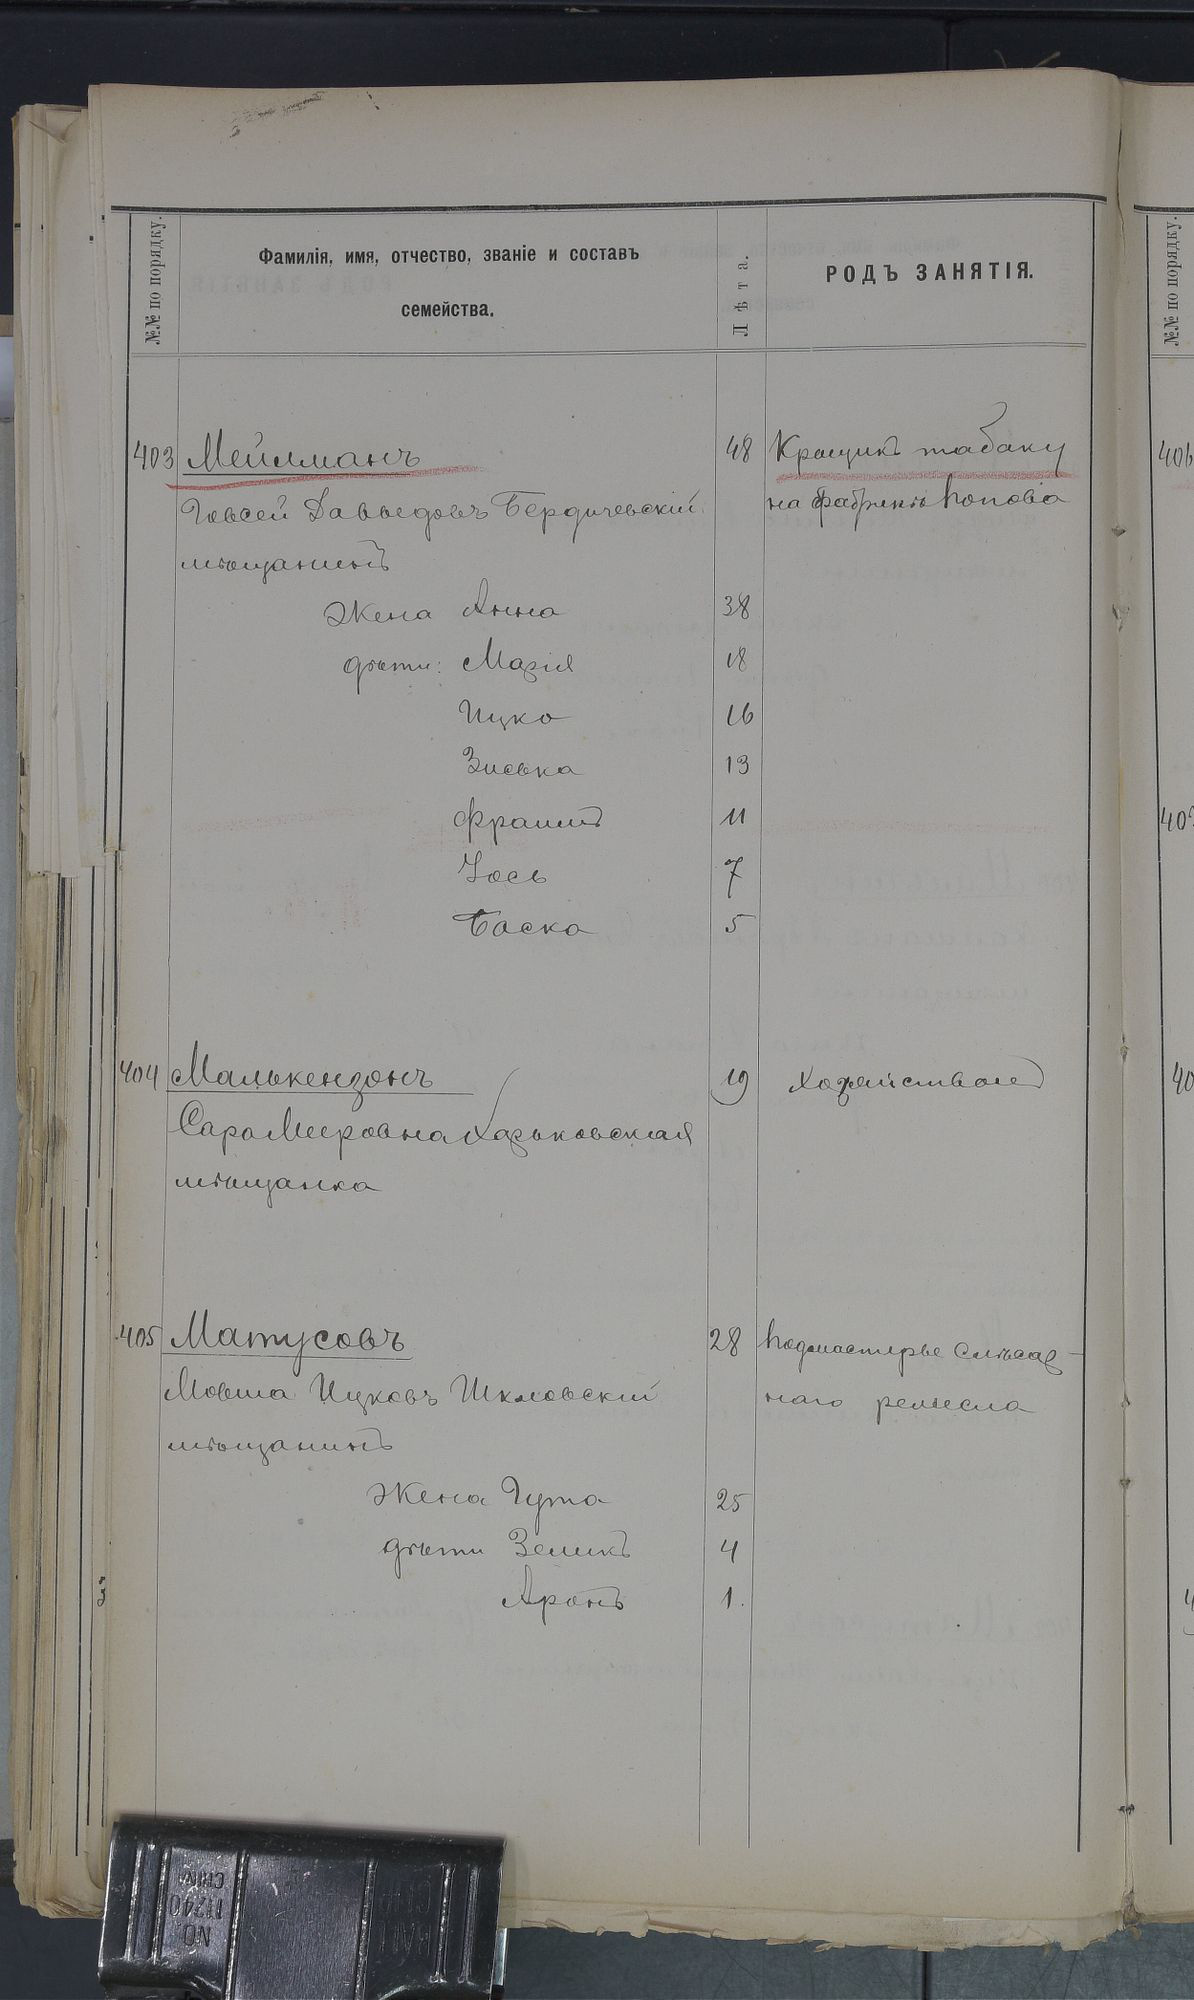 №№ по порядку.
Фамилія, имя, отчество, званіе и составъ
семейства.
Лѣта.
РОДЪ ЗАНЯТІЯ.
№№ по порядку.
403 Мейлманъ 48 Крошикъ табаку
Говсей Давыдовъ Бердичевскій на фабрикѣ Попова
мѣщанинъ
Жена Анна 38
дѣти: Марія 18
Ицко 16
Зиська 13
Фраимъ 11
Іось 7
Баска 5
404 Малькензонъ 19 Хозяйствомъ
Сара Мееровна Харьковская
мѣщанка
405 Матусовъ 28 Подмастерье слѣсар-
Мовша Ицковъ Шкловскій наго ремесла
мѣщанинъ
Жена Гута 25
дѣти Зеликъ 4
Аронъ 1.
406
NO.
11240
CHIN